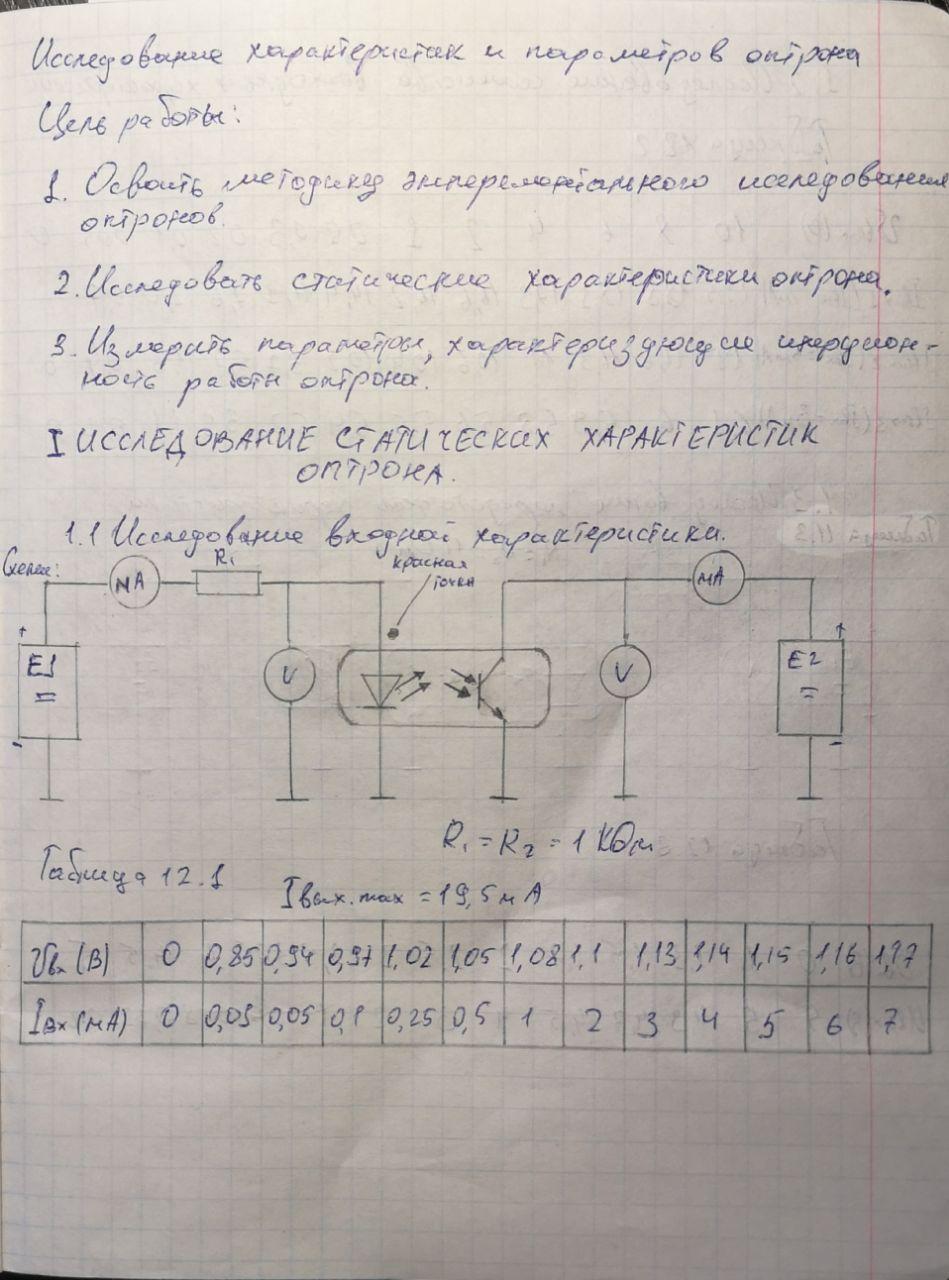 Исследование характеристик и параметров оптрона
Цель работы:
1. Освоить методику эксперементального исследования
оптронов.
2. Исследовать статические характеристики оптрона.
3. Измерить параметры, характеризующие инерцион-
ность работы оптрона.
I ИССЛЕДОВАНИЕ СТАТИЧЕСКИХ ХАРАКТЕРИСТИК
ОПТРОНА.
1.1 Исследование входной характеристики.
Схема:
мА R1 красная точка мА
+ E1 = - V V E2 = + -
R1 = R2 = 1 КОм
Таблица 12.1
Iвых.max = 19,5 мА
Uвх (В) 0 0,85 0,94 0,97 1,02 1,05 1,08 1,1 1,13 1,14 1,15 1,16 1,17
Iвх (мА) 0 0,05 0,1 0,25 0,5 1 2 3 4 5 6 7